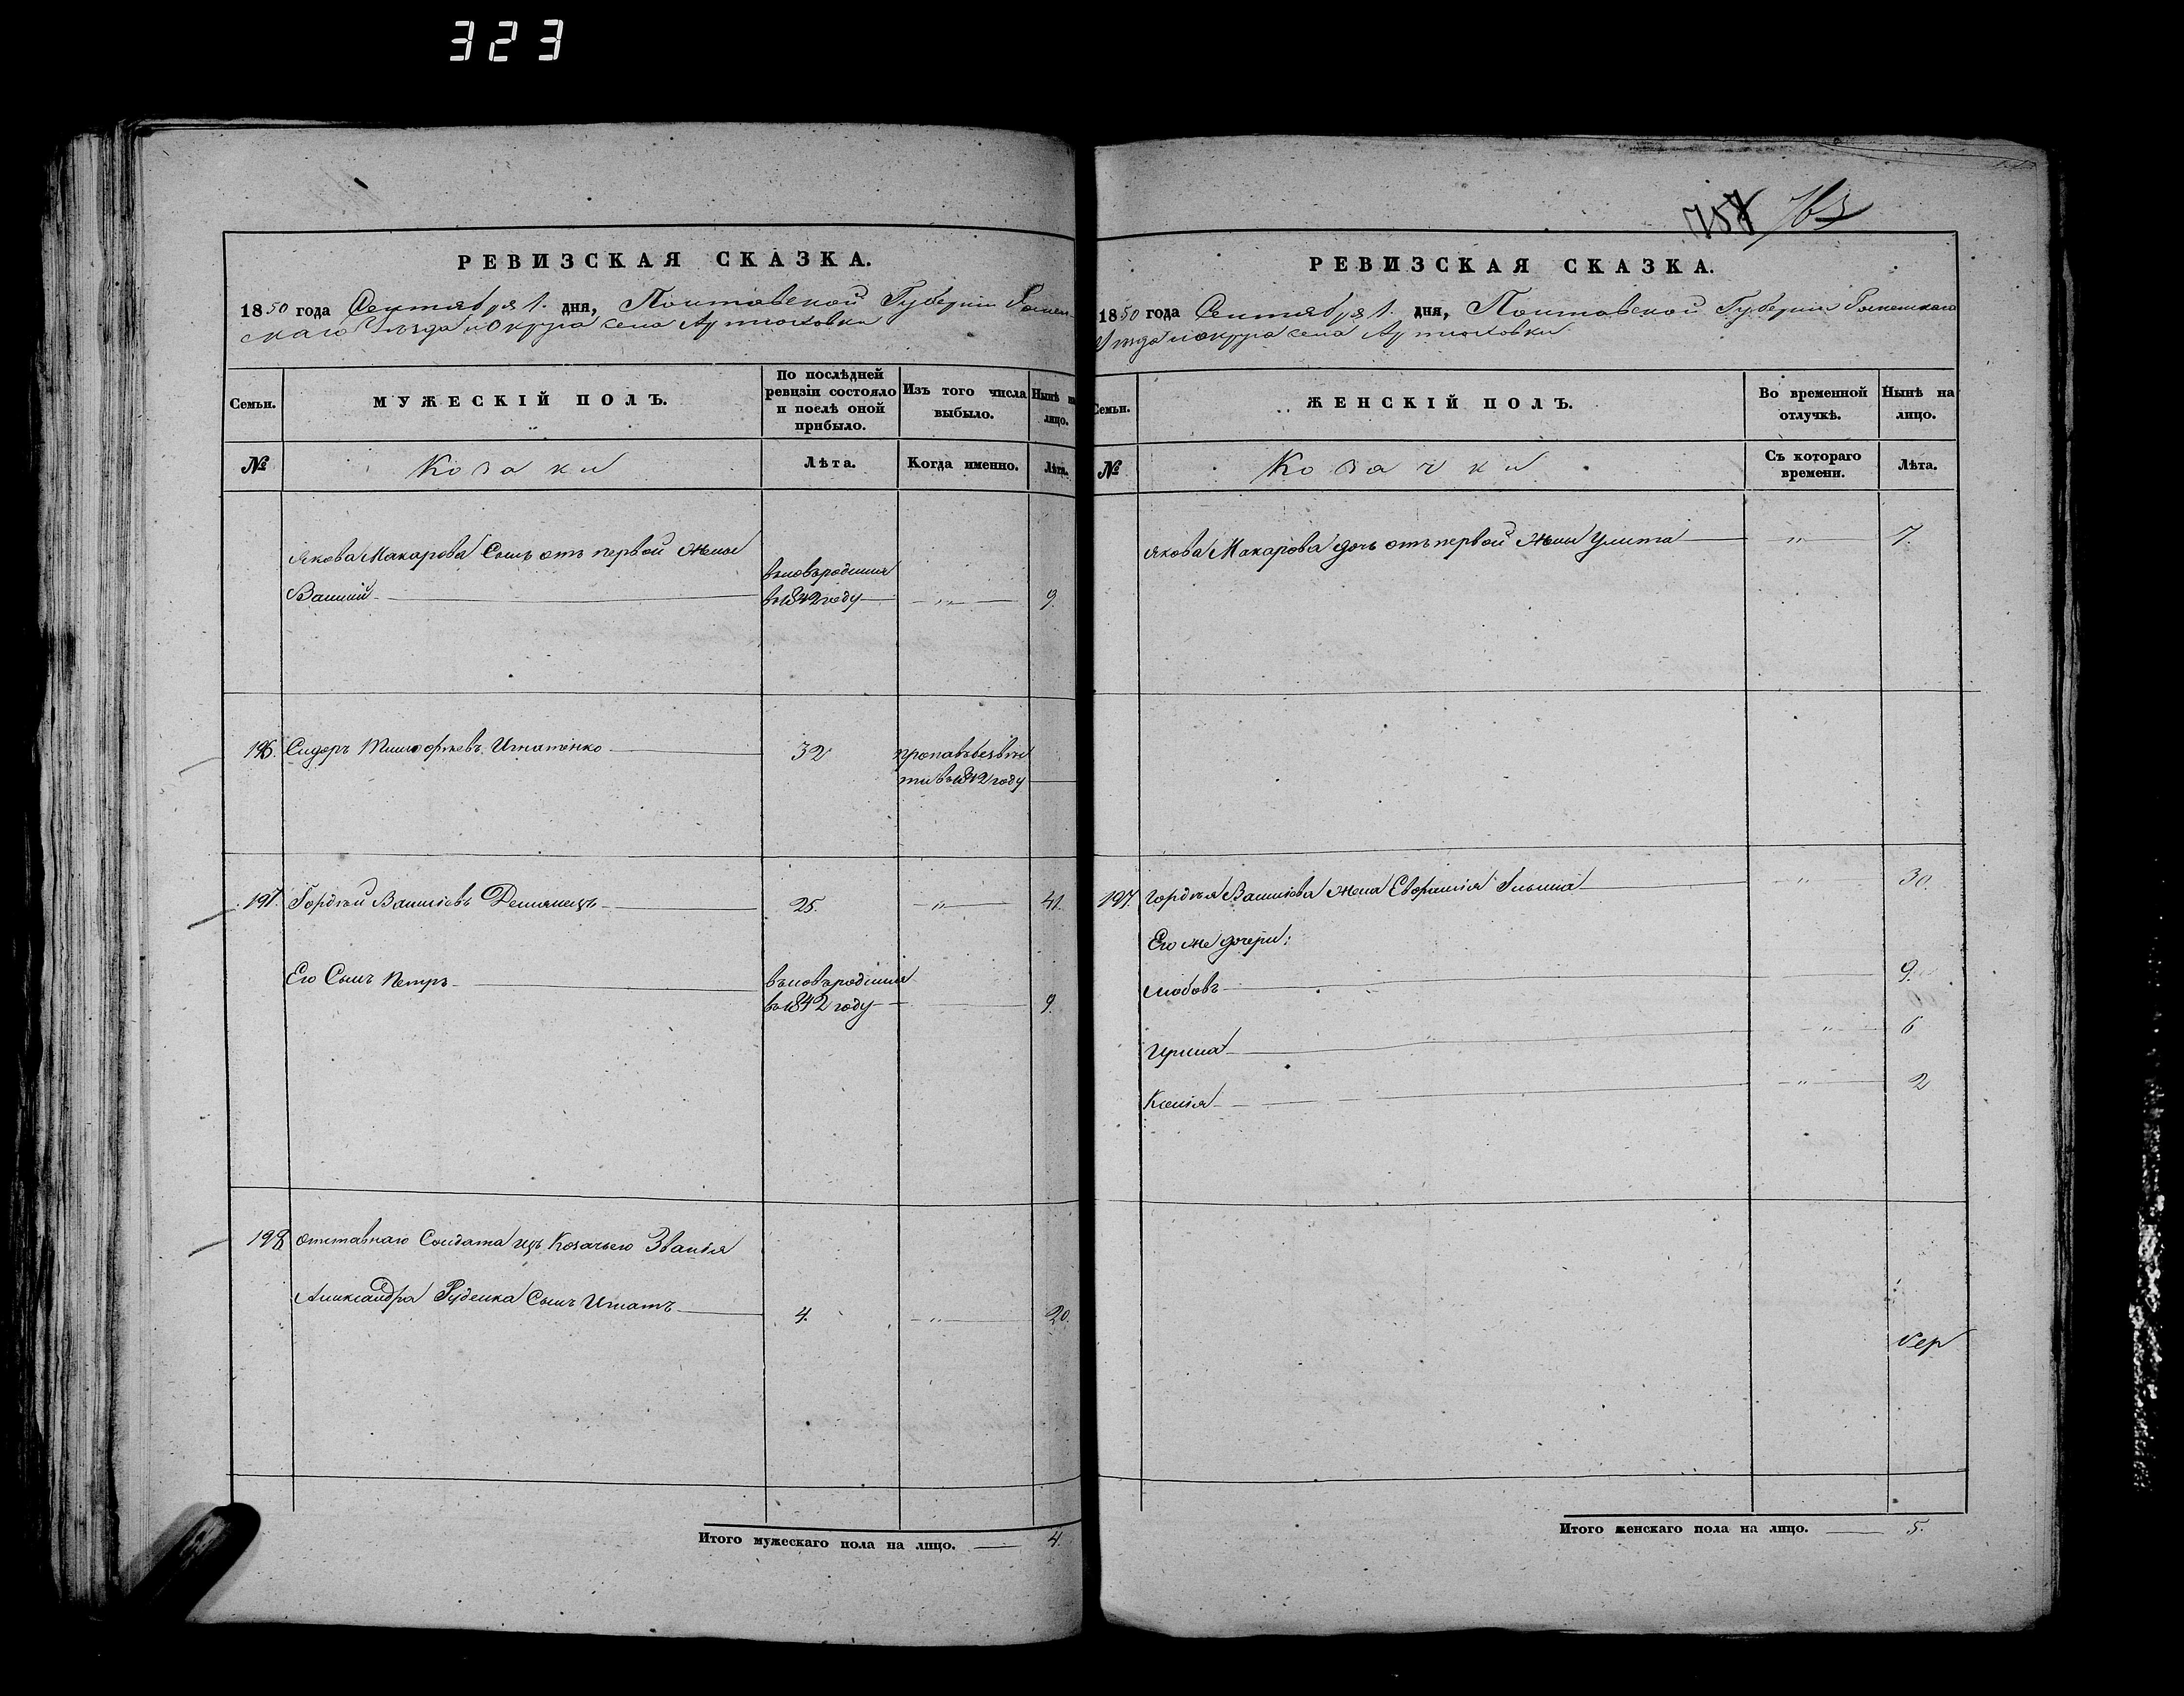 323
РЕВИЗСКАЯ СКАЗКА.
1850 года Сентября 1. дня, Полтавской Губерніи Ромен-
скаго Уѣзда и Округа села Артюховки
Семьи.
МУЖЕСКІЙ ПОЛЪ.
По послѣдней ревизіи состояло и послѣ оной прибыло.
Изъ того числа выбыло.
Нынѣ на лицо.
№
Козаки
Лѣта.
Когда именно.
Лѣта.
Якова Макарова Сынъ отъ первой жены
Василий
вновьродился
въ 1842 году
9.
196. Сидоръ Игнатенко 32 пропавъ безвѣс
ти въ 1842 году
197. Гордѣй Васильевъ Демянецъ 25. 41.
Его Сынъ Петръ вновьродился
въ 1842 году 9.
198 отставнаго Солдата изъ Козачьего Званія
Александра Руденка Сынъ Игнатъ 4. 20.
Итого мужескаго пола на лицо. 4.
758 763
РЕВИЗСКАЯ СКАЗКА.
1850 года Сентября 1. дня, Полтавской Губерніи Роменскаго
Уѣзда и округа села Артюховки
Семьи.
ЖЕНСКІЙ ПОЛЪ.
Во временной отлучкѣ.
Нынѣ на лицо.
№
Козачки
Съ котораго времени.
Лѣта.
Якова Макарова дочь отъ первой жены Улита " 7.
197. Гордѣя Васильева жена Евфимія Ильина " 30.
Его же дочери:
Любовъ 9.
Ирина " 6
Ксенія " 2
Итого женскаго пола на лицо. 5.